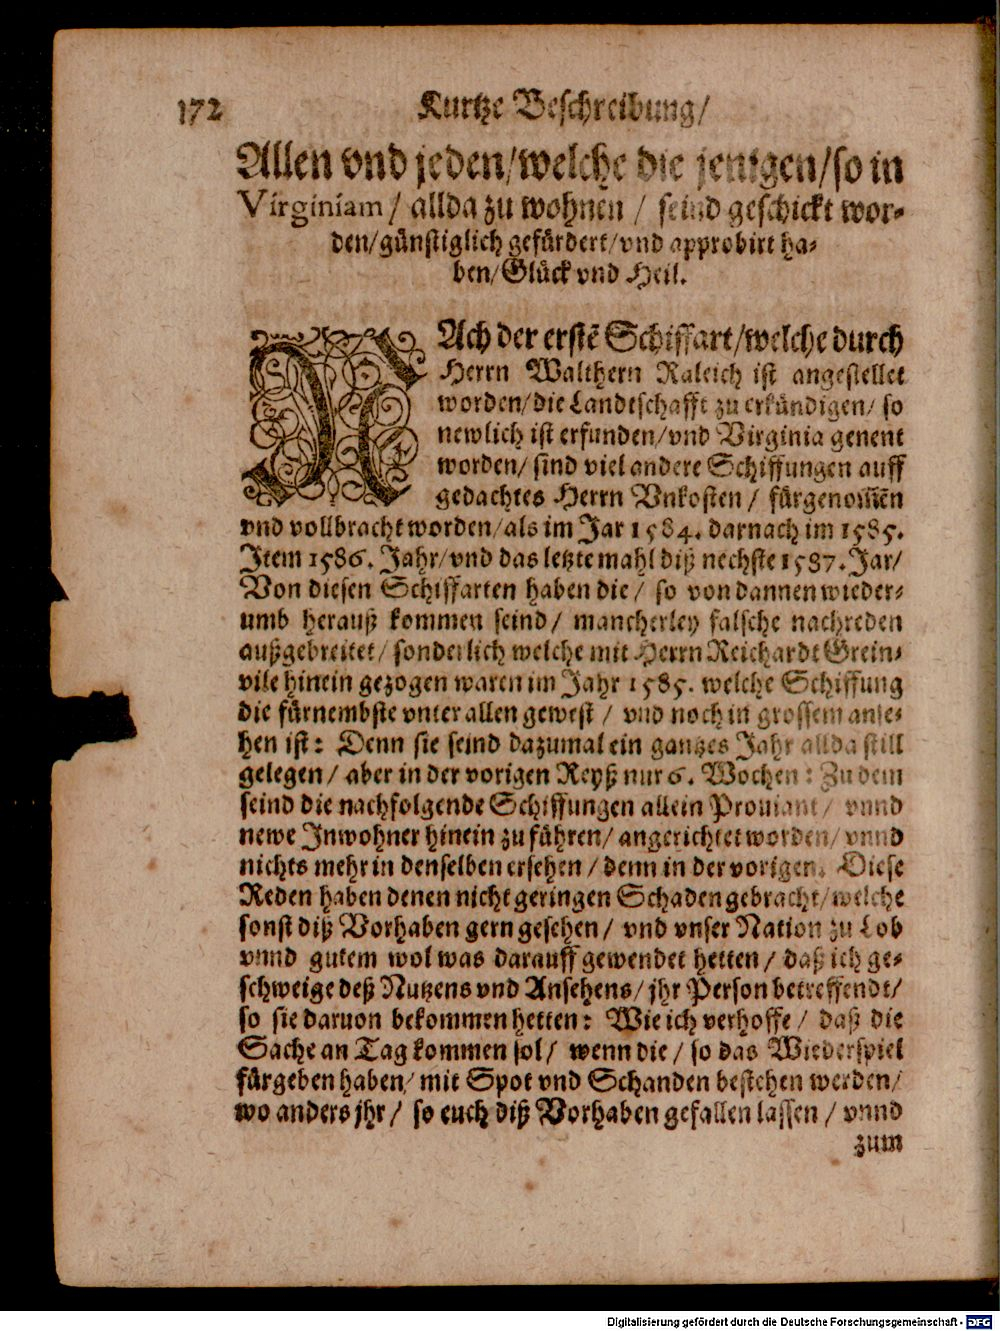 172 Kurtze Beschreibung/
Allen vnd jeden/welche die jenigen/so in
Virginiam/ allda zu wohnen / seind geschickt wor-
den/günstiglich gefürdert/vnd approbirt ha-
ben/Glück vnd Heil.
NAch der erstē Schiffart/welche durch
Herrn Walthern Raleich ist angestellet
worden/die Landtschafft zu erkündigen/ so
newlich ist erfunden/vnd Virginia genent
worden/ sind viel andere Schiffungen auff
gedachtes Herrn Vnkosten / fürgenom̄ēn
vnd vollbracht worden/als im Jar 1584. darnach im 1585.
Item 1586. Jahr/vnd das letzte mahl diß nechste 1587. Jar/
Von diesen Schiffarten haben die / so von dannen wieder-
umb herauß kommen seind / mancherley falsche nachreden
außgebreitet/ sonderlich welche mit Herrn Reichardt Grein-
vile hinein gezogen waren im Jahr 1585. welche Schiffung
die fürnembste vnter allen gewest / vnd noch in grossem anse-
hen ist: Denn sie seind dazumal ein gantzes Jahr allda still
gelegen / aber in der vorigen Reyß nur 6. Wochen : Zu dem
seind die nachfolgende Schiffungen allein Prouiant / vnnd
newe Inwohner hinein zu führen/ angerichtet worden/ vnnd
nichts mehr in denselben ersehen / denn in der vorigen. Diese
Reden haben denen nicht geringen Schaden gebracht/welche
sonst diß Vorhaben gern gesehen / vnd vnser Nation zu Lob
vnnd gutem wol was darauff gewendet hetten / daß ich ge-
schweige deß Nutzens vnd Ansehens/ jhr Person betreffendt/
so sie daruon bekommen hetten: Wie ich verhoffe / daß die
Sache an Tag kommen sol/ wenn die / so das Wiederspiel
fürgeben haben/ mit Spot vnd Schanden bestehen werden/
wo anders jhr / so euch diß Vorhaben gefallen lassen / vnnd
zum
Digitalisierung gefördert durch die Deutsche Forschungsgemeinschaft - DFG